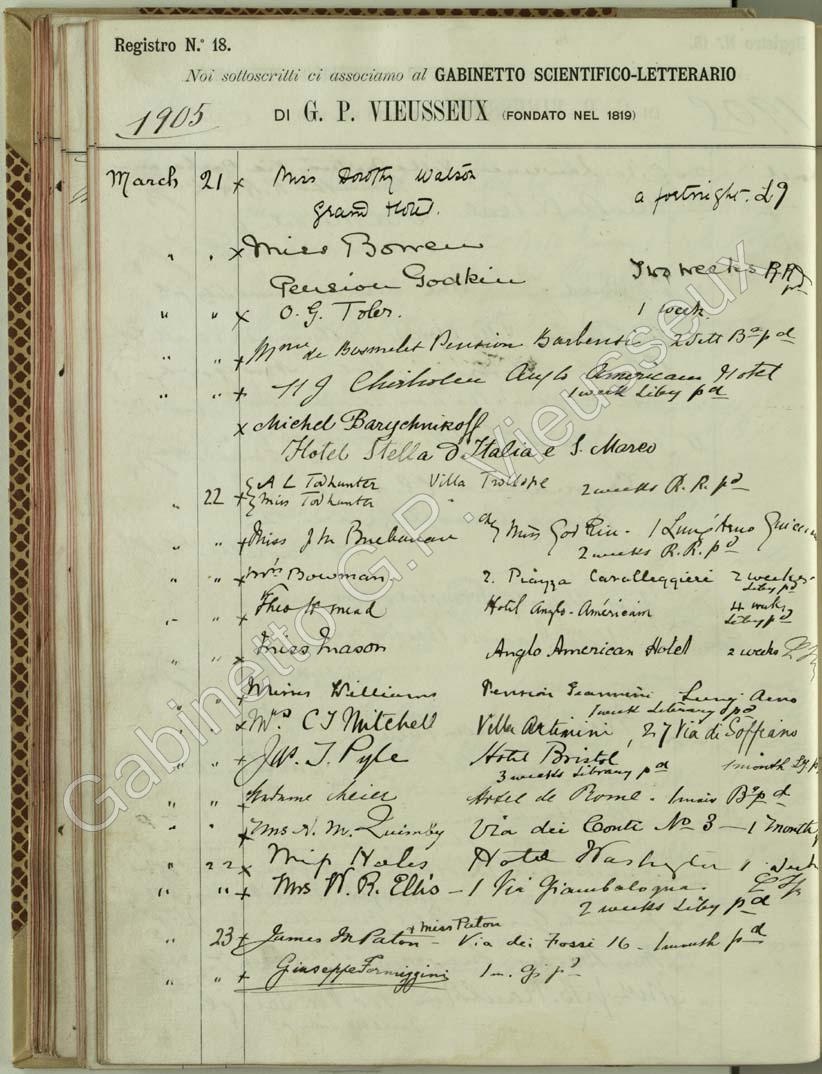 Registro N.º 18.
Noi sottoscritti ci associamo al GABINETTO SCIENTIFICO-LETTERARIO
1905 DI G. P. VIEUSSEUX (FONDATO NEL 1819)
March 21 x Miss Dorothy Watson
Grand Hotel. a fortnight. £9
" " x Miss Bowen
Pension Godkin Two weeks R.R. pd
" " x O. G. Toler. 1 week
" " + Mme de Pension 2 Sett Ba pd
" " + H J Chisholm Anglo American Hotel
1 week Liby pd
x Michel Barychnikoff
Hotel Stella d'Italia e S. Marco
" 22 + { A L Todhunter Villa Trollope 2 weeks R. R. pd
{ Miss Todhunter "
" " + Miss J M Buchanan Miss Godkin - 1 Lung'Arno
2 weeks R.R. pd
" " + Mrs Bowman 2. Piazza Cavalleggieri 2 weeks
Liby pd
" " + Theo W mead Hotel Anglo-Américain 4 weeks
Liby pd
" " x Miss Mason Anglo American Hotel 2 weeks
" " x Misses Williams Pension Giannini Lung Arno
1 week Literary pd
" " x Mrs C T Mitchell Villa Artimini, 27 Via di Soffiano
" " + Jas. T. Pyle Hotel Bristol 1 month Ly pd
3 weeks Library pd
" " + Madame Meier Hotel de Rome - 1 mois Ba pd
" " + Mrs N. M. Quimby Via dei Conti No 3 - 1 month
" 22 x Miss Hales Hotel Washington 1 week
" " x Mrs W. R. Ellis - 1 Via Giambologna.
2 weeks Liby pd
+ Miss Paton
" 23 + James M Paton - Via dei Fossi 16 - 1 month pd
" " + Giuseppe Formiggini 1 m. pd
Gabinetto G.P. Vieusseux